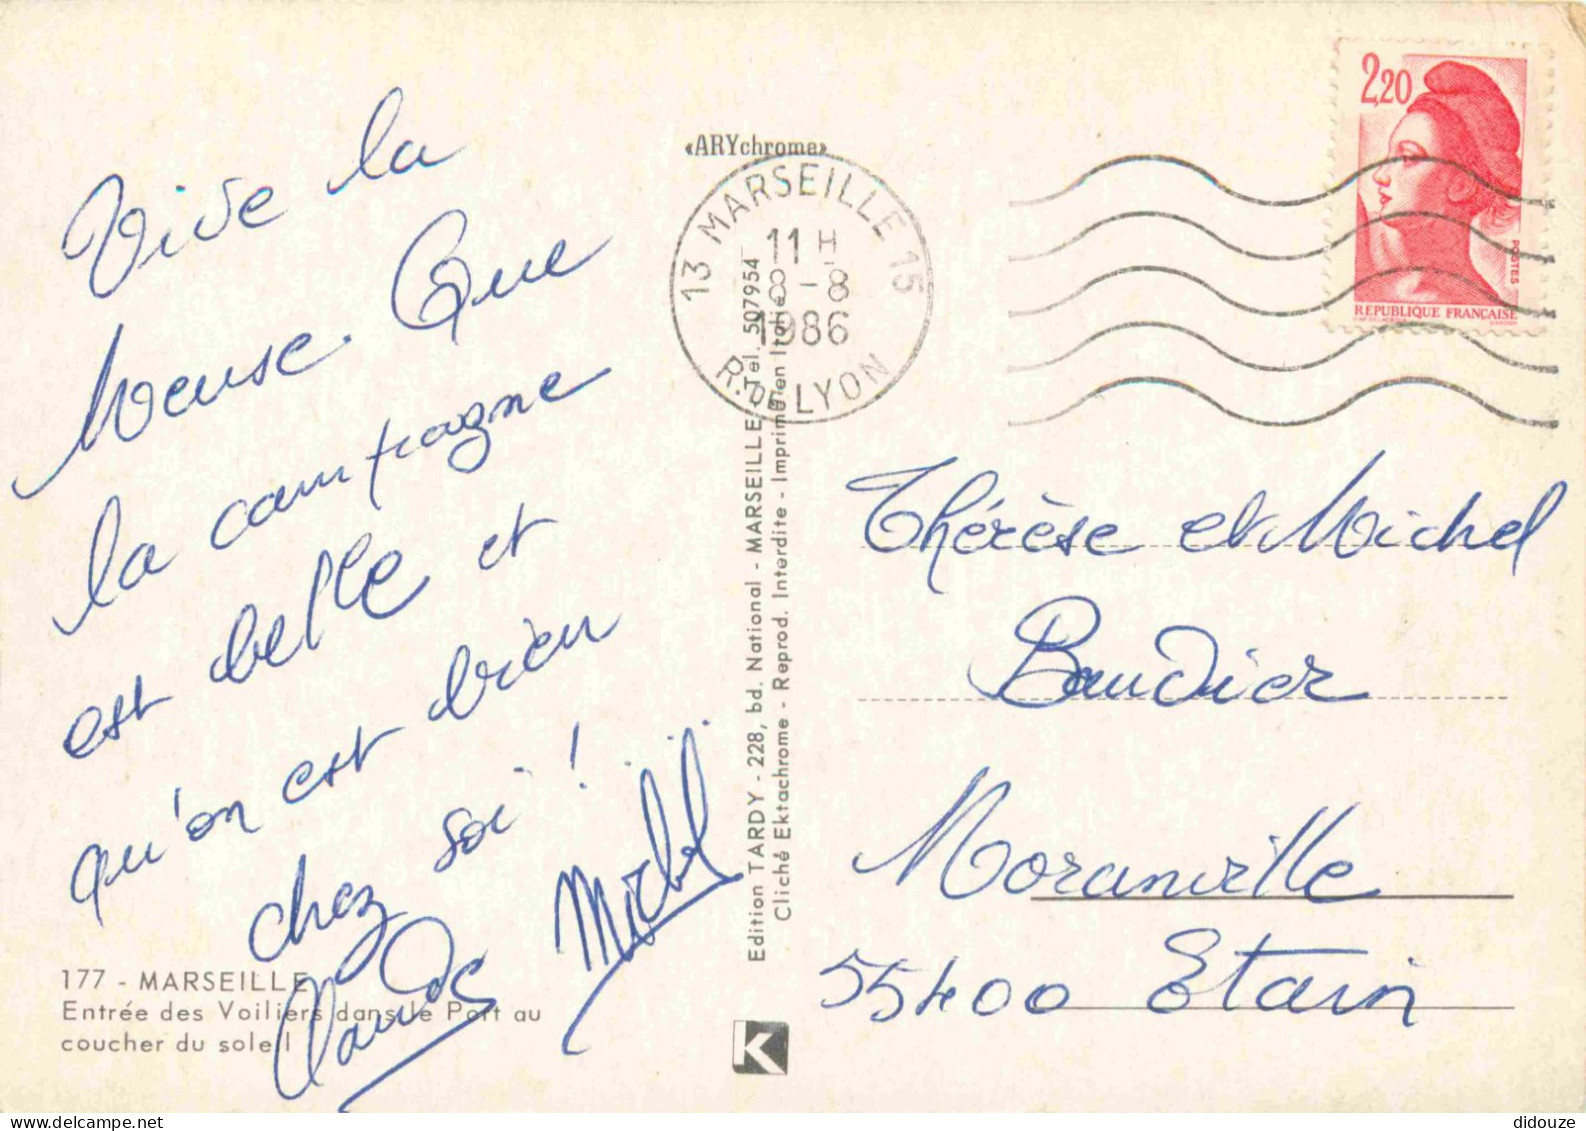 Vive la
Meuse. Que
la campagne
est belle et
qu'on est bien
chez soi !
Claude Michel
177 - MARSEILLE
Entrée des Voiliers dans le Port au
coucher du soleil
«ARYchrome»
Edition TARDY - 228, bd. National - MARSEILLE Tel. 507954
Cliché Ektachrome - Reprod. Interdite - Imprimé en Italie
K
13 MARSEILLE 15
11 H
8-8
1986
R. DE LYON
2,20
POSTES
REPUBLIQUE FRANÇAISE
Thérèse et Michel
Baudier
Moranville
55400 Etain
didouze